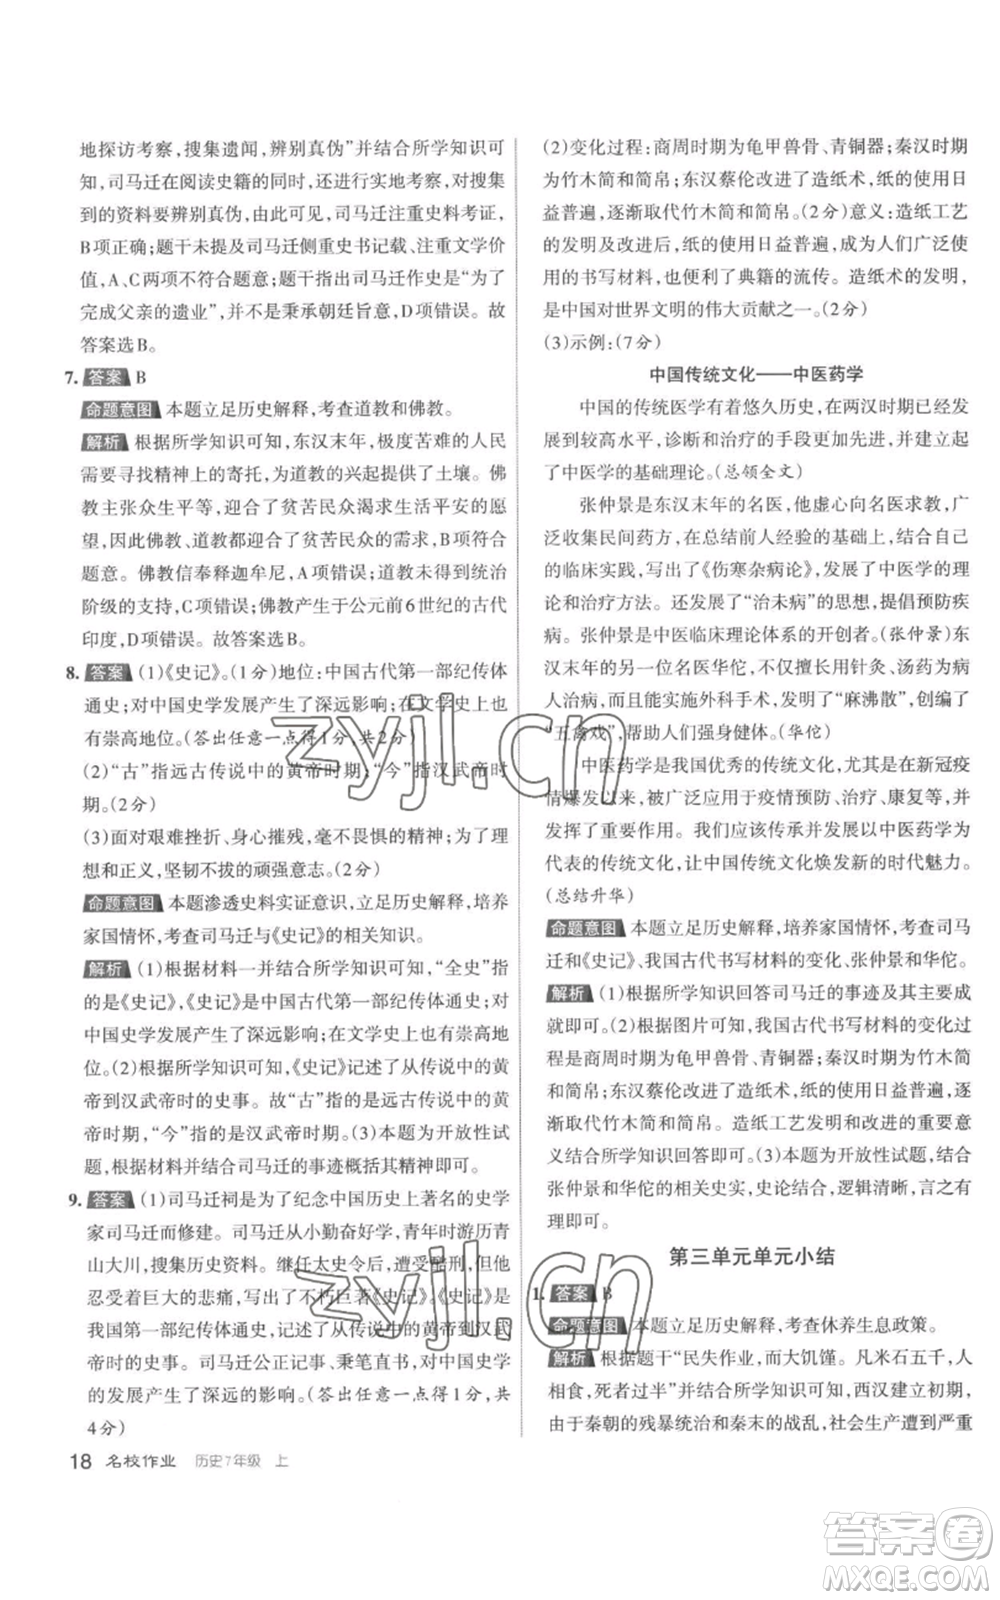 地探访考察,搜集遗闻,辨别真伪”并结合所学知识可
知,司马迁在阅读史籍的同时,进行实地考察,对搜集
到的资料要辨别真伪,由此可见,司马迁注重史料考证,
B项正确;题干未提及司马迁侧重史书记载、注重文学价
值,A、C两项不符合题意;题干指出司马迁作史是“为了
完成父亲的遗业”,并不是秉承朝廷旨意,D项错误。故
答案选B。
7. 答案 B
命题意图 本题立足历史解释,考查道教和佛教。
解析 根据所学知识可知,东汉末年,极度苦难的人民
需要寻找精神上的寄托,为道教的兴起提供了土壤。佛
教主张众生平等等,迎合了贫苦民众渴求生活平安的愿
望,因此佛教、道教都迎合了贫苦民众的需求,B项符合
题意。佛教信奉释迦牟尼,A项错误;佛教得到了统治
阶级的支持,C项错误;佛教产生于公元前6世纪的古代
印度,D项错误。故答案选B。
8. 答案 (1)《史记》。(1分)地位:中国古代第一部纪传体
通史;对中国史学发展产生了深远影响;在文学史上也
有崇高地位。(答出任意一点得1分,共2分)
(2)“古”指远古传说中的黄帝时期;“今”指汉武帝时
期。(2分)
(3)面对艰难挫折、身心摧残,毫不畏惧的精神;为了理
想和正义,坚韧不拔的顽强意志。(2分)
命题意图 本题渗透史料实证意识,立足历史解释,培养
家国情怀,考查司马迁与《史记》的相关知识。
解析 (1)根据材料一并结合所学知识可知,“全史”指
的是《史记》,《史记》是中国古代第一部纪传体通史;对
中国史学发展产生了深远影响;在文学史上也有崇高地
位。(2)根据所学知识可知,《史记》记述了从传说中的黄
帝到汉武帝时的史事。故“古”指的是远古传说中的黄
帝时期,“今”指的是汉武帝时期。(3)本题为开放性试
题,根据材料并结合司马迁的事迹概括其精神即可。
9. 答案 (1)司马迁祠是为了纪念中国历史上著名的史学
家司马迁而修建。司马迁从小勤奋好学,青年时游历青
山大川,搜集历史资料。继任太史令后,遭受酷刑,但他
忍受着巨大的悲痛,写出了不朽巨著《史记》。《史记》是
我国第一部纪传体通史,记述了从传说中的黄帝到汉武
帝时的史事。司马迁公正记事、秉笔直书,对中国史学
的发展产生了深远的影响。(答出任意一点得1分,共
4分)
18 名校作业 历史7年级 上
(2)变化过程:商周时期为龟甲兽骨、青铜器;秦汉时期
为竹木简和简帛;东汉蔡伦改进了造纸术,纸的使用日
益普遍,逐渐取代竹木简和简帛。(2分)意义:造纸工艺
的发明及改进以及纸的日益普遍,成为人们广泛使用
的书写材料,也便利了典籍的流传。造纸术的发明,
是中国对世界文明的伟大贡献之一。(2分)
(3)示例:(7分)
中国传统文化——中医药学
中国的传统医学有着悠久历史,在两汉时期已经发
展到较高水平,诊断和治疗的手段更加先进,并建立起
了中医学的基础理论。(总领全文)
张仲景是东汉末年的名医,他虚心向名医求教,广
泛收集民间药方,在总结前人经验的基础上,结合自己
的临床实践,写出了《伤寒杂病论》,发展了中医学的理
论和治疗方法。还发展了“治未病”的思想,提倡预防疾
病。张仲景是中医临床理论体系的开创者。(张仲景)东
汉末年的另一位名医华佗,不仅擅长用针灸、汤药为病
人治病,而且能实施外科手术,发明了“麻沸散”,创编了
“五禽戏”,帮助人们强身健体。(华佗)
中医药学是我国优秀的传统文化,尤其是在新冠疫
情爆发以来,被广泛应用于疫情预防、治疗、康复等,并
发挥了重要作用。我们应该传承并发展以中医药学为
代表的传统文化,让中国传统文化焕发新的时代魅力。
(总结升华)
命题意图 本题立足历史解释,培养家国情怀,考查司马
迁和《史记》、我国古代书写材料的变化、张仲景和华佗。
解析 (1)根据所学知识回答司马迁的事迹及其主要成
就即可。(2)根据图片可知,我国古代书写材料的变化过
程是商周时期为龟甲兽骨、青铜器;秦汉时期为竹木简
和简帛;东汉蔡伦改进了造纸术,纸的使用日益普遍,逐
渐取代竹木简和简帛。造纸工艺发明和改进的重要意
义结合所学知识回答即可。(3)本题为开放性试题,结合
张仲景和华佗的相关史实,史论结合,逻辑清晰,言之有
理即可。
第三单元单元小结
1. 答案 B
命题意图 本题立足历史解释,考查休养生息政策。
解析 根据题干“民失作业,而大饥馑。凡米石五千,人
相食,死者过半”并结合所学知识可知,西汉建立初期,
由于秦朝的残暴统治和秦末的战乱,社会生产遭到严重
zyjl.cn
zyjl.cn
答案圈
MXQE.COM